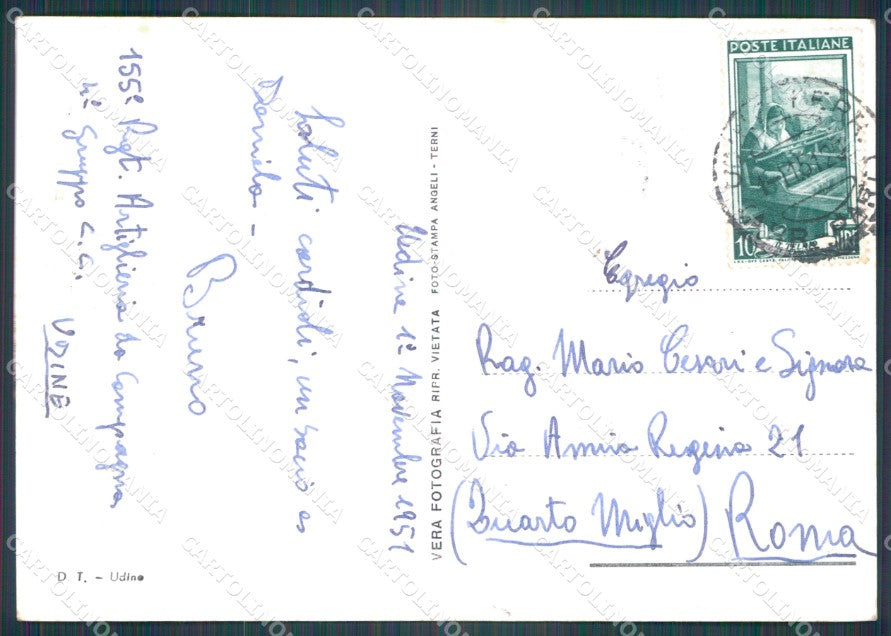 Udine 1° Novembre 1951
Saluti cordiali, un bacio a
Daniela -
Bruno
155° Rgt. Artiglieria da Campagna
4° Gruppo C. C.
UDINE
D T. - Udine
VERA FOTOGRAFIA RIPR. VIETATA FOTO-STAMPA ANGELI - TERNI
POSTE ITALIANE
10 LIRE
Egregio
Rag. Mario Cesari e Signora
Via Annia Regina 21
(Quarto Miglio) Roma
CARTOLINOMANIA